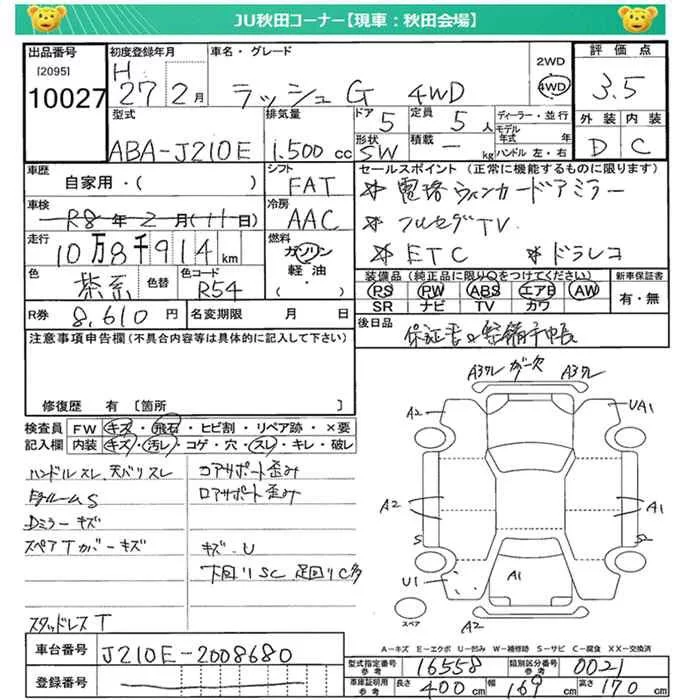 JU秋田コーナー【現車：秋田会場】
出品番号 初度登録年月 車名・グレード 評価点
[2095] 10027 H 27 2月 ラッシュ G 4WD 2WD 4WD 3.5
型式 排気量 ドア 定員 ディーラー・並行 外装 内装
ABA-J210E 1.500cc 5 5人 モデル年式 年 D C
形状 積載 ハンドル 左・右
SW - kg
車歴 シフト セールスポイント (正常に機能するものに限ります)
自家用・( ) FAT ☆ 電格ウィンカードアミラー
車検 冷房 ☆ フルセグTV
R8年2月(11日) AAC ☆ ETC ☆ ドラレコ
走行 燃料
10万8千914km ガソリン 軽油 ・( )
色 色替 色コード 装備品(純正品に限り○をつけてください) 新車保証書
茶系 R54 PS PW ABS エアB AW 有・無
SR ナビ TV カワ
R券 8,610円 名変期限 月 日 後日品
保証書 整備手帳
注意事項申告欄(不具合内容等は具体的に記入して下さい)
修復歴 有 [箇所 ]
検査員記入欄 FW キズ・飛石・ヒビ割・リペア跡・×要
内装 キズ・汚レ・コゲ・穴・スレ・キレ・破レ
ハンドルスレ、天バリスレ コアサポート歪み
ロアサポート歪み
Dミラーキズ
スペアTカバーキズ キズ・U
下回りSC 足回りC多
スタッドレスT
A3クレ ガー欠 A3クレ
A2 UA1
A2 A1
S S
U1 A1
スペア A2
A-キズ E-エクボ U-凹み W-補修跡 S-サビ C-腐食 XX-交換済
車台番号 J210E-2008680
登録番号
型式指定番号参考 16558 類別区分番号参考 0021
車庫証明用参考 長さ 400cm 幅 169cm 高さ 170cm